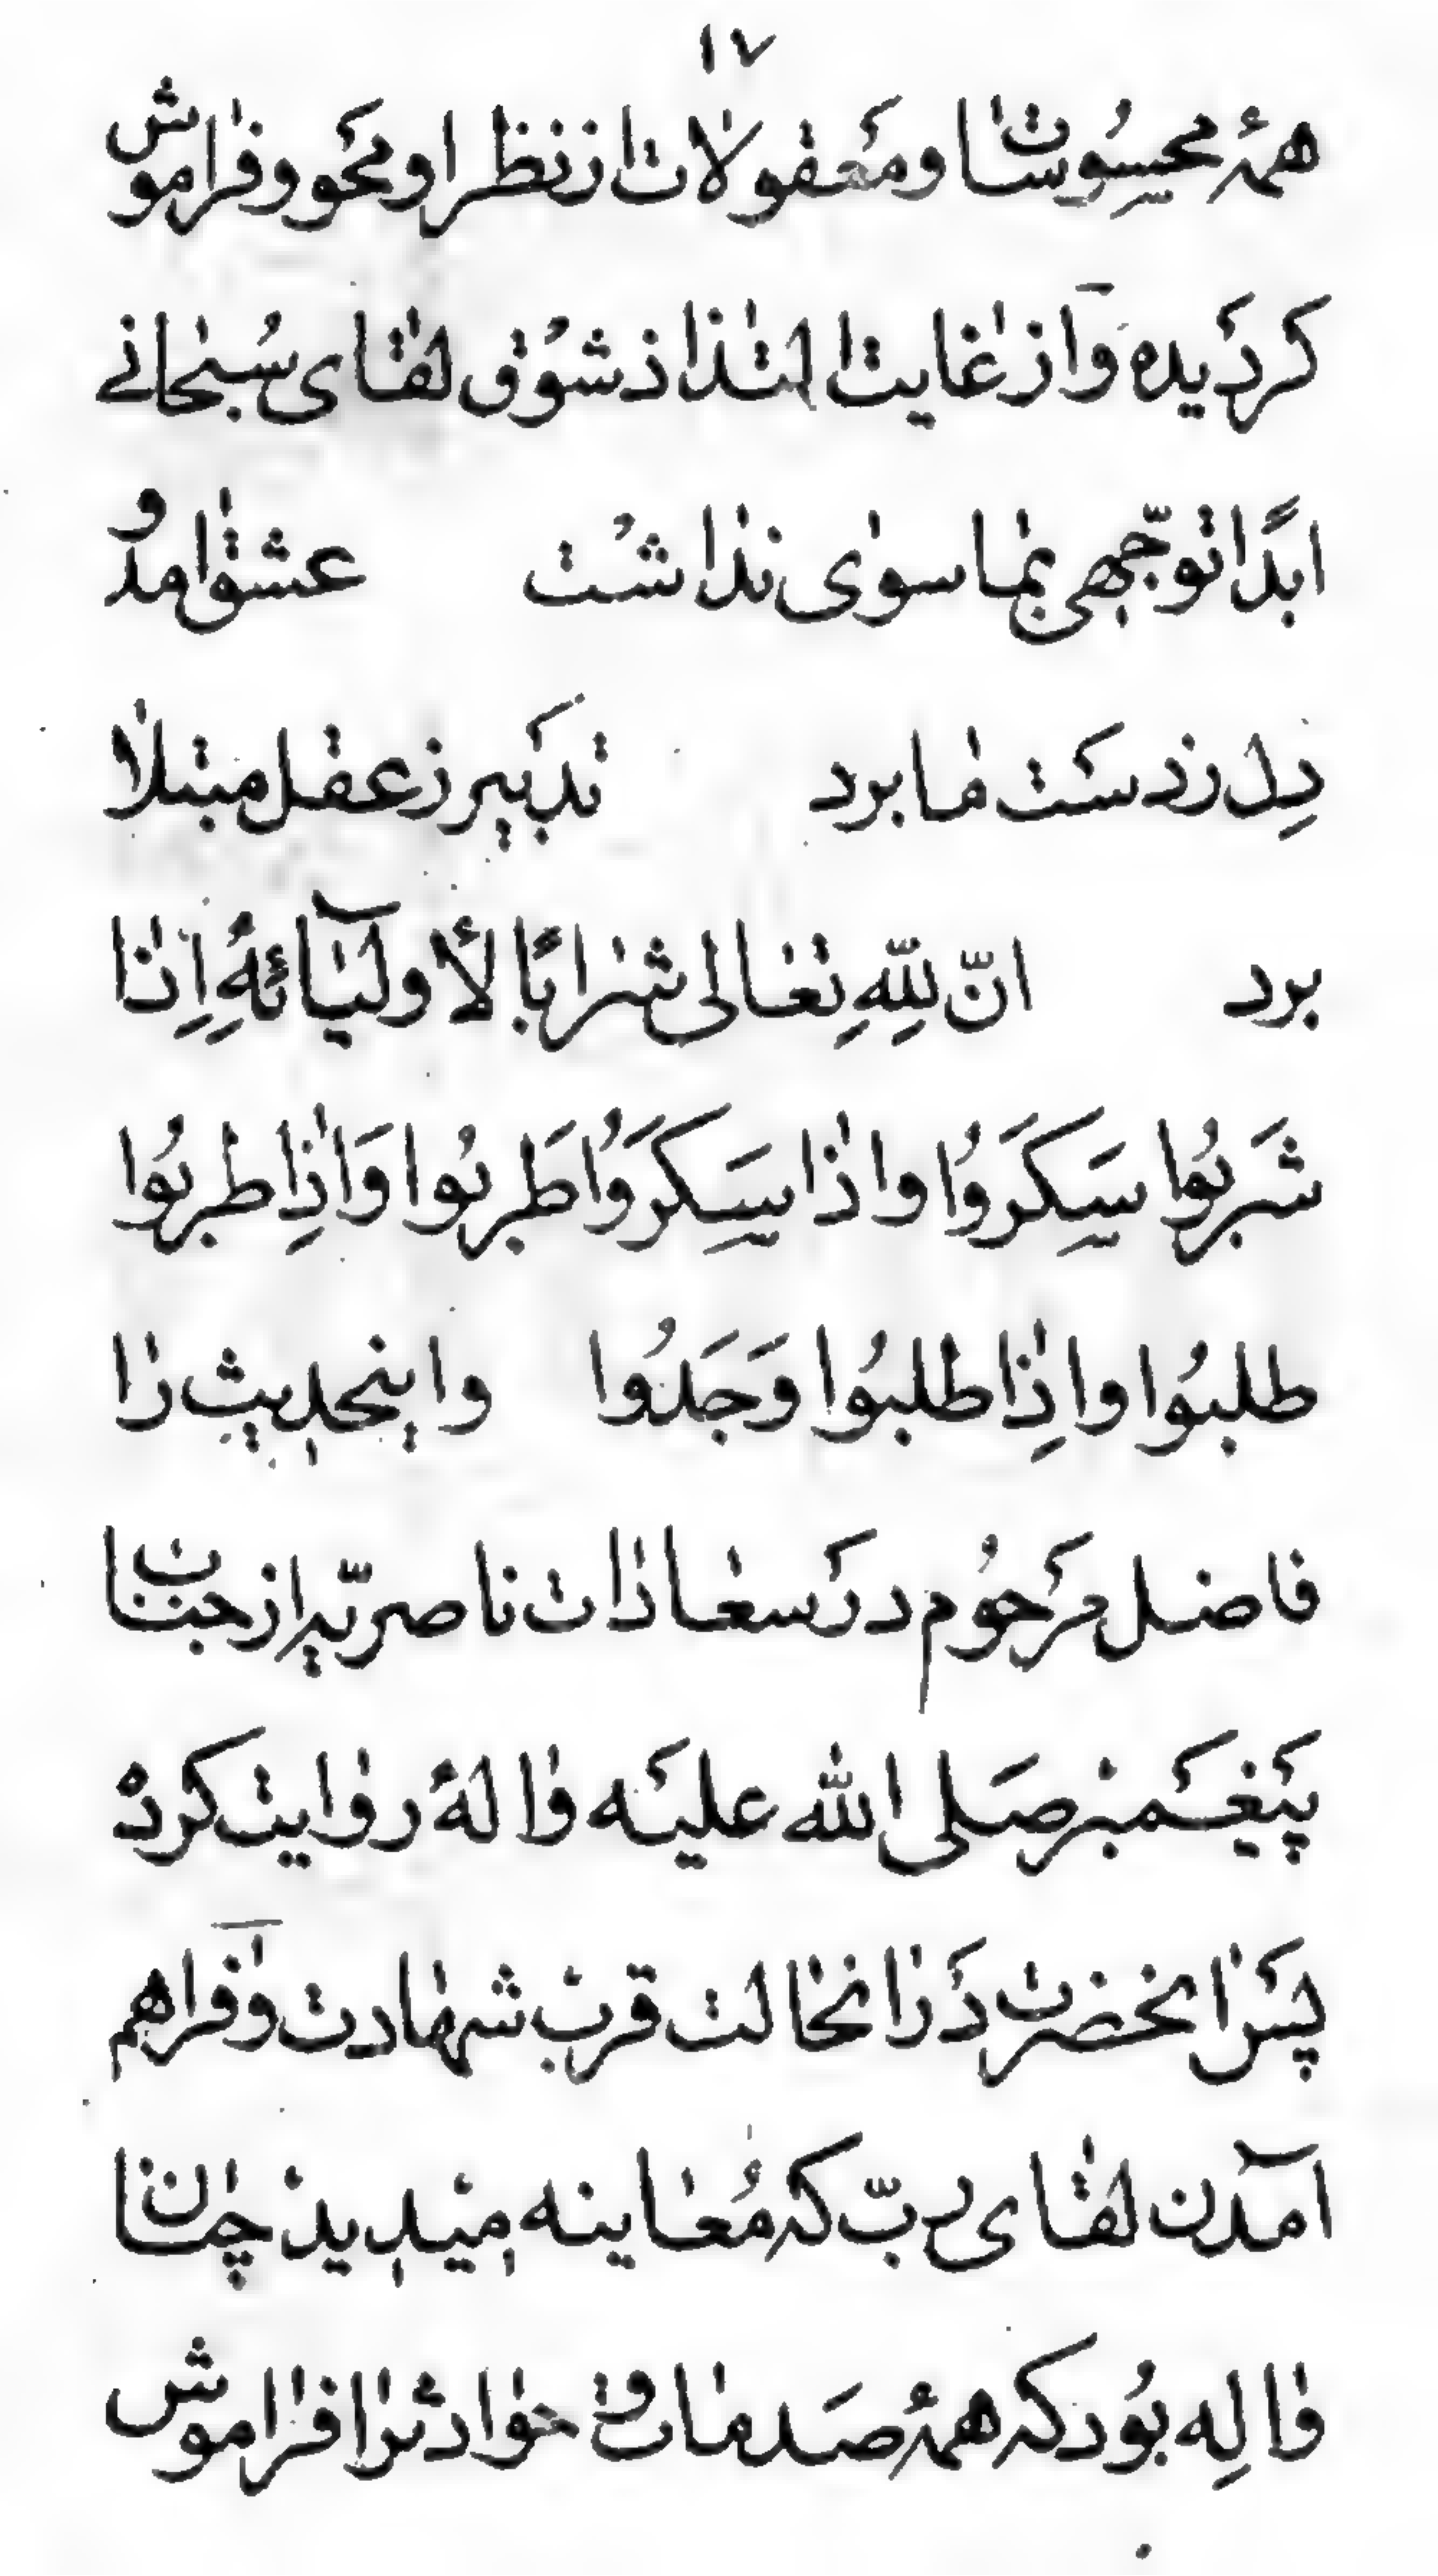 ۱۷
همهٔ محسوسات و معقولات از نظر او محو و فراموش
کردیده و از غایت التذاذ شوق لقای سبحانے
ابدًا توجّهی بما سوای نداشت عشق آمد و
دِل ز دست ما برد تدبیر ز عقل مبتلا
برد انّ لِلّهِ تعالی شرابًا لأولیآئهِ اِذا
شَربُوا سَکِرَوُا و اذا سَکِرَوُا طَربُوا وَ اذِا طربُوا
طلبُوا و اذِا طلبُوا وَجَدُوا و اینحدیث را
فاضل مرحُوم در سعادات ناصریّه از جناب
پیغمبر صَلی الله علیه و اله روایت کرده
پس انحضرت در انحالت قرب شهادت و فراهم
آمدن لقای ربّ که مُعاینه میدید چنان
والِه بُود که همهٔ صَدمات و حوادثرا فراموش